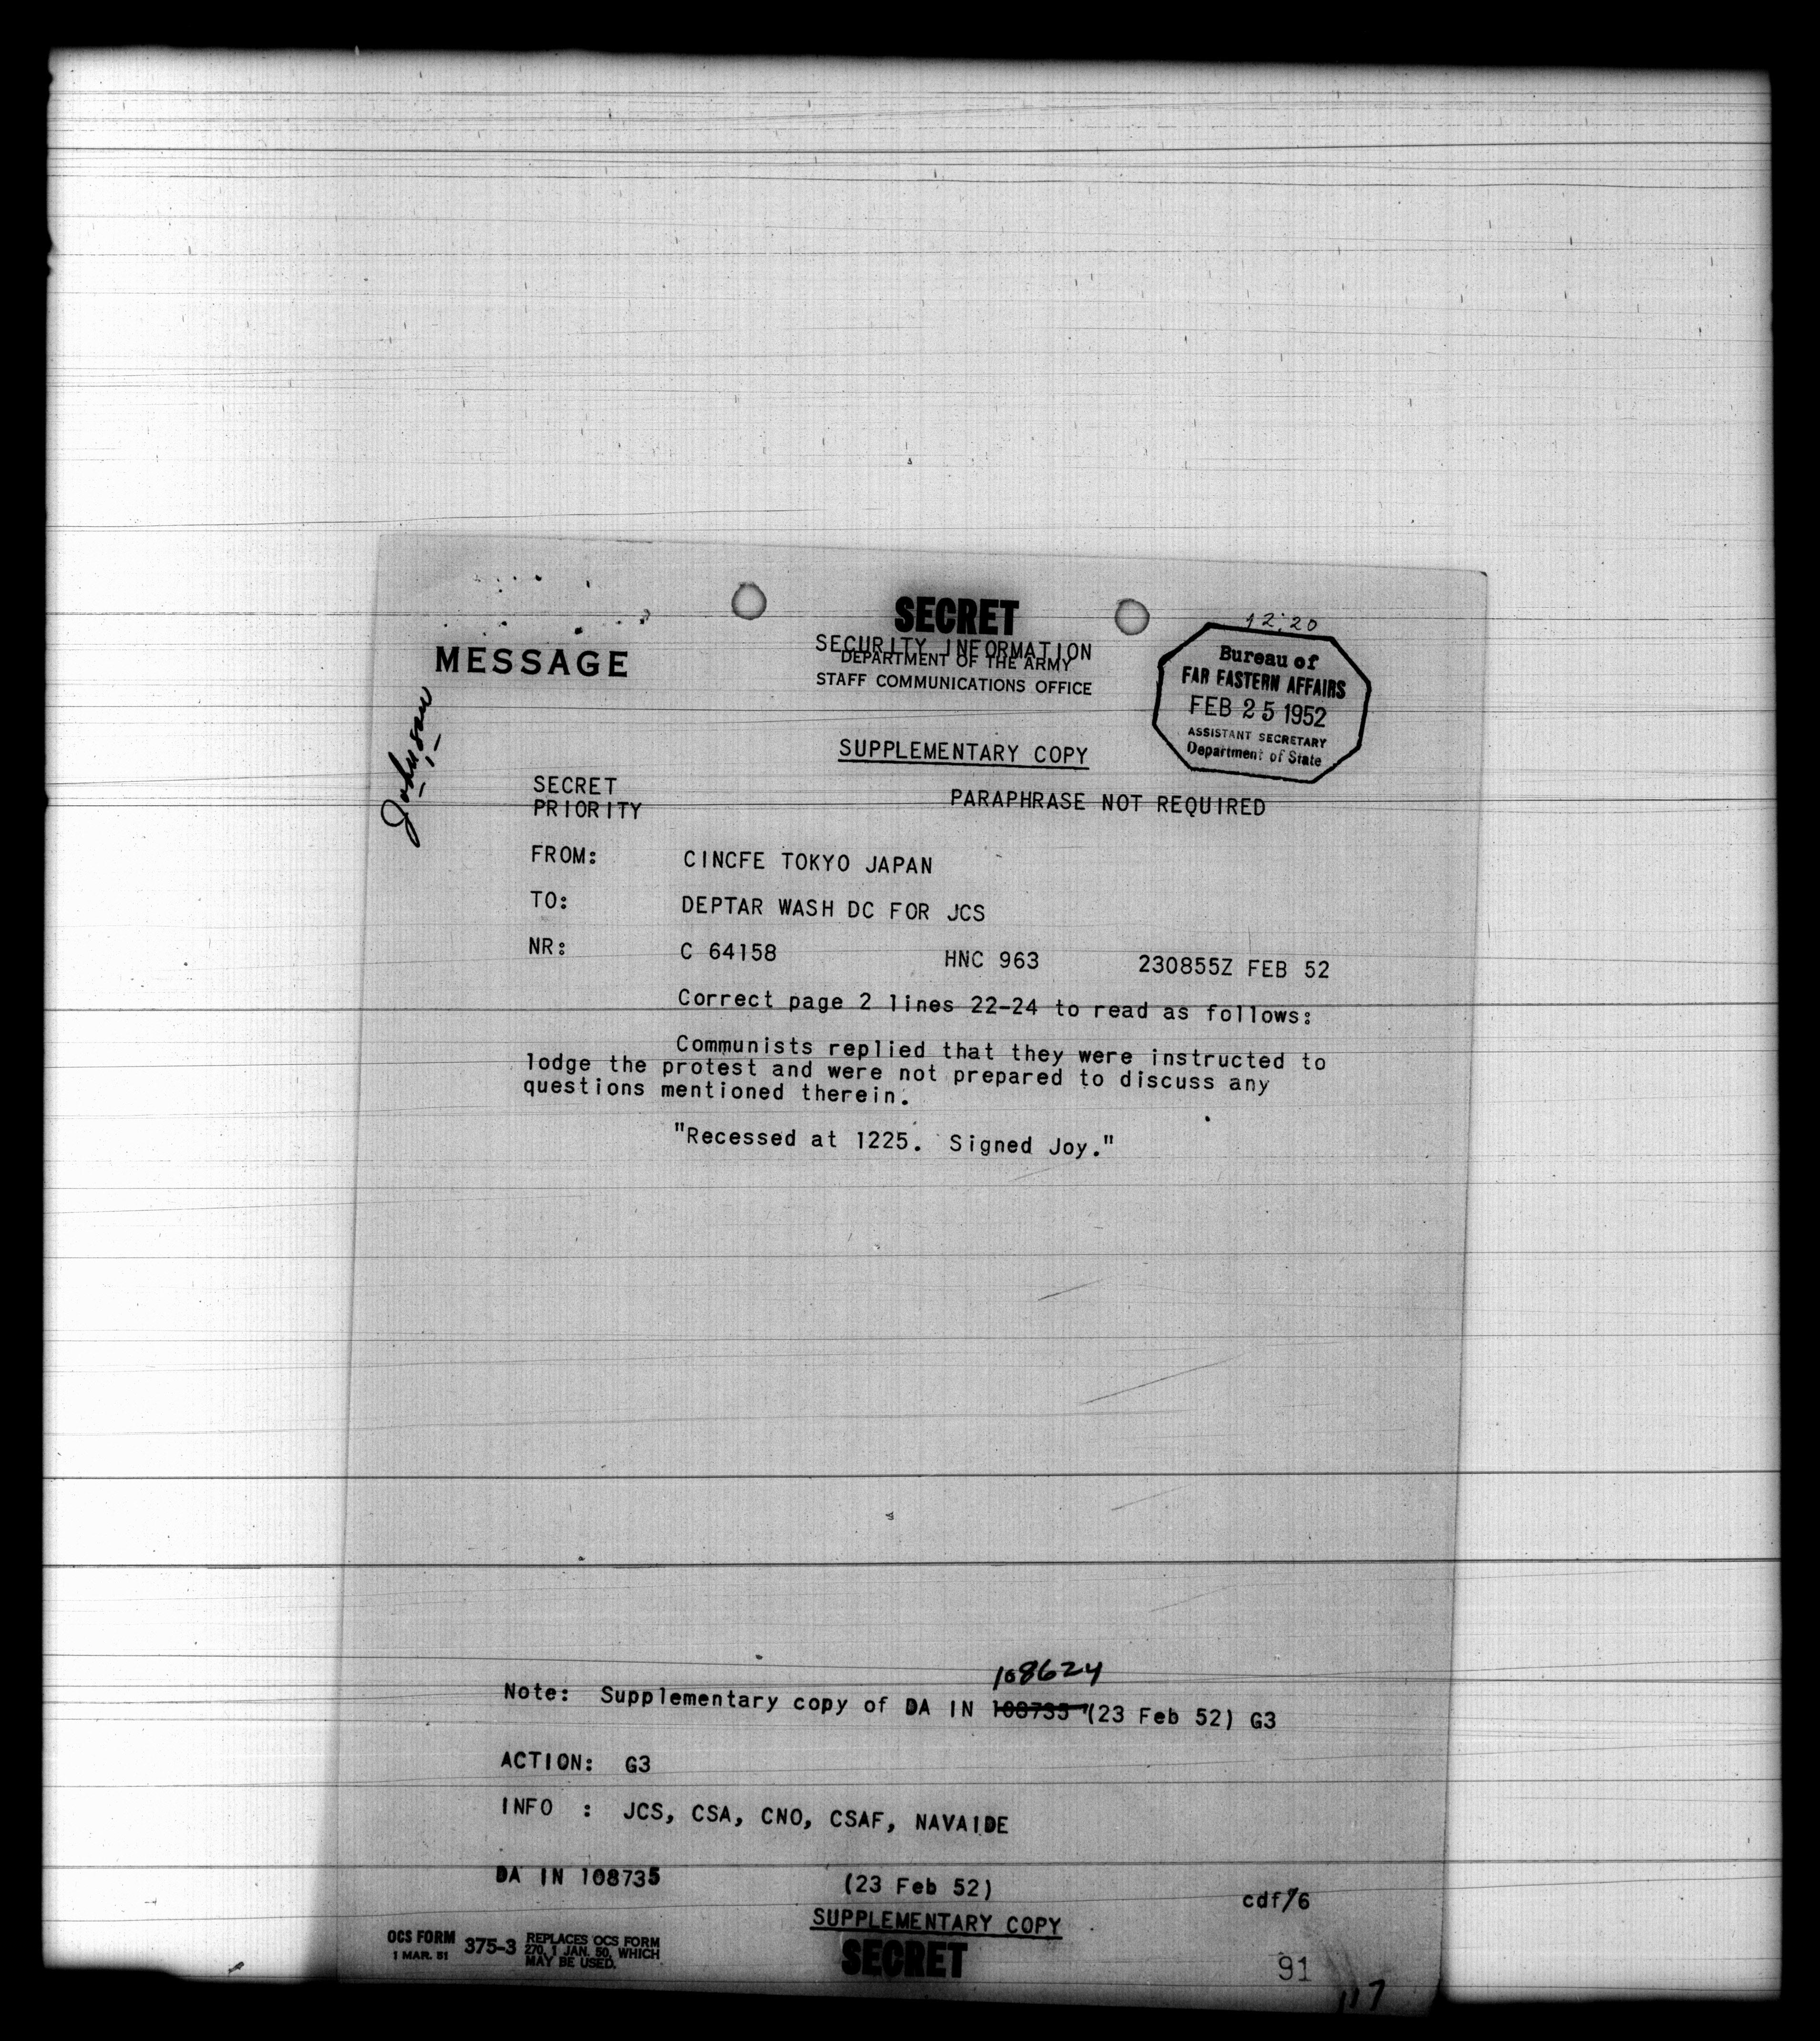 SECRET
SECURITY INFORMATION
12:20
MESSAGE
DEPARTMENT OF THE ARMY
STAFF COMMUNICATIONS OFFICE
Bureau of
FAR EASTERN AFFAIRS
FEB 25 1952
ASSISTANT SECRETARY
Department of State
Johnson
SUPPLEMENTARY COPY
SECRET
PRIORITY
PARAPHRASE NOT REQUIRED
FROM: CINCFE TOKYO JAPAN
TO: DEPTAR WASH DC FOR JCS
NR: C 64158 HNC 963 230855Z FEB 52
Correct page 2 lines 22-24 to read as follows:
Communists replied that they were instructed to
lodge the protest and were not prepared to discuss any
questions mentioned therein.
"Recessed at 1225. Signed Joy."
108624
Note: Supplementary copy of DA IN 108735 (23 Feb 52) G3
ACTION: G3
INFO : JCS, CSA, CNO, CSAF, NAVAIDE
DA IN 108735 (23 Feb 52) cdf/6
SUPPLEMENTARY COPY
OCS FORM 375-3 REPLACES OCS FORM
1 MAR. 51 270, 1 JAN. 50, WHICH
MAY BE USED.
SECRET
91
117